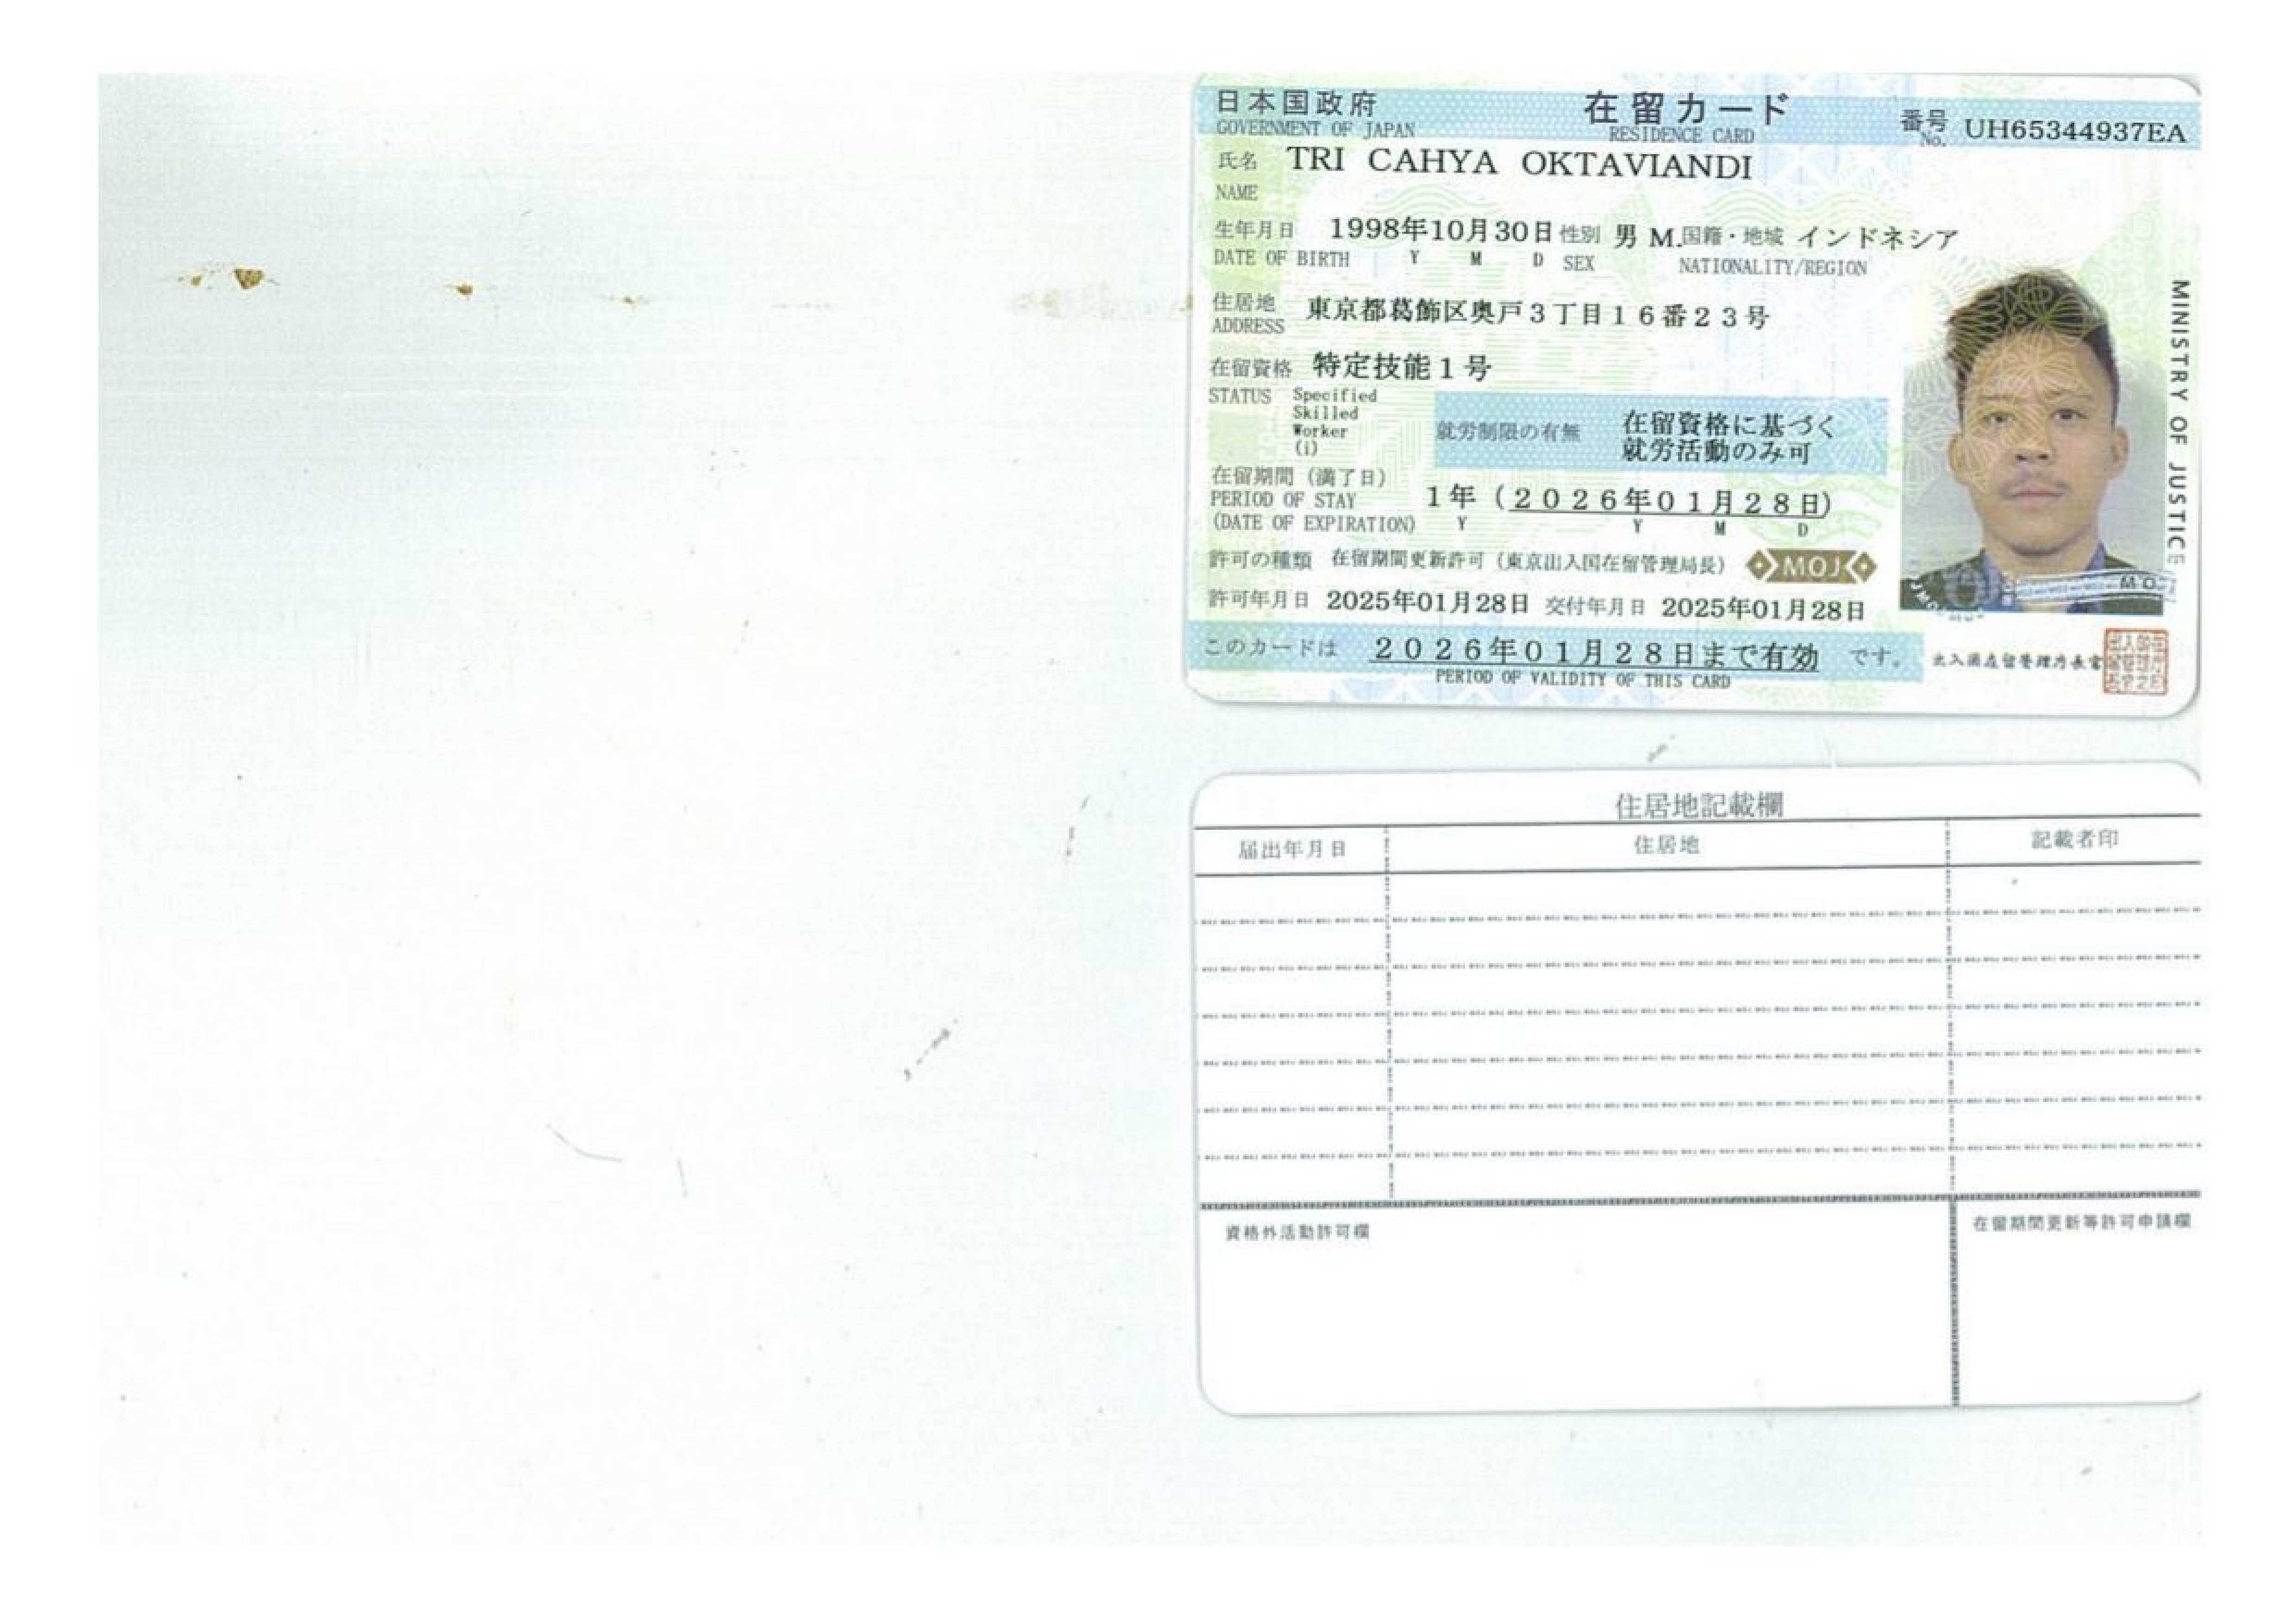 日本国政府 在留カード 番号 UH65344937EA
GOVERNMENT OF JAPAN RESIDENCE CARD No.
氏名 TRI CAHYA OKTAVIANDI
NAME
生年月日 1998年10月30日 性別 男 M. 国籍・地域 インドネシア
DATE OF BIRTH Y M D SEX NATIONALITY/REGION
住居地 東京都葛飾区奥戸3丁目16番23号
ADDRESS
在留資格 特定技能1号
STATUS Specified
Skilled
Worker
(i)
就労制限の有無 在留資格に基づく
就労活動のみ可
在留期間(満了日)
PERIOD OF STAY 1年(2026年01月28日)
(DATE OF EXPIRATION) Y Y M D
許可の種類 在留期間更新許可(東京出入国在留管理局長) MOJ
許可年月日 2025年01月28日 交付年月日 2025年01月28日
このカードは 2026年01月28日まで有効 です。
PERIOD OF VALIDITY OF THIS CARD
出入国在留管理庁長官
MINISTRY OF JUSTICE
住居地記載欄
届出年月日 住居地 記載者印
資格外活動許可欄 在留期間更新等許可申請欄